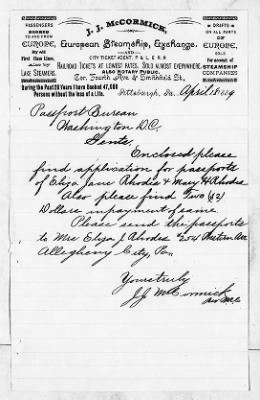 PASSENGERS
BOOKED
TO AND FROM
EUROPE,
BY ALL
First Class Lines.
ALSO
LAKE STEAMERS.
J. J. McCORMICK,
European Steamship, Exchange,
—AND—
CITY TICKET AGENT, P. & L. E. R. R
RAILROAD TICKETS AT LOWEST RATES. SOLD ALMOST EVERYWHERE.
ALSO NOTARY PUBLIC.
Cor. Fourth Ave. & Smithfield St.,
DRAFTS
ON ALL PARTS
OF
EUROPE,
SOLD
For account of
STEAMSHIP
COMPANIES
During the Past 20 Years I have Booked 47,000
Persons without the loss of a Life.
Pittsburgh, Pa., April 18 1889
Passport Bureau
Washington D.C.
Gents.
Enclosed please
find application for passports
of Eliza Jane Rhodes & Mary H Rhodes
Also please find Two ($2)
Dollars in payment of same.
Please send the passports
to Mrs Eliza J Rhodes #254 Western Ave
Allegheny City, Pa.
Yours truly
J.J. McCormick